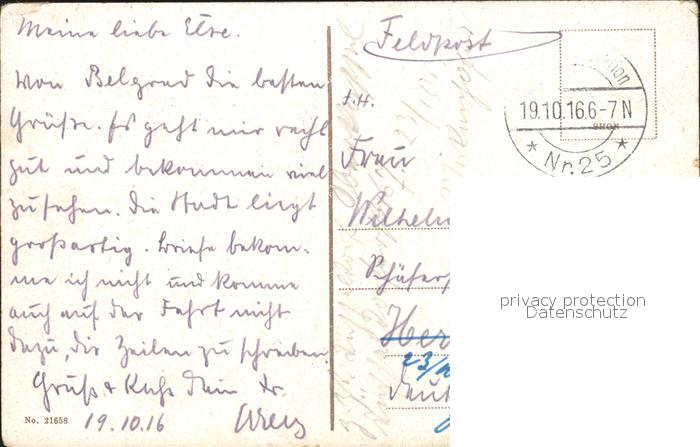 Meine liebe Else.
Von Belgrad die besten
Grüße. Es geht mir recht
gut und bekommen viel
zu sehen. Die Stadt liegt
großartig. Briefe bekom-
me ich nicht und komme
auch auf der Fahrt nicht
dazu, dir Zeilen zu schreiben.
Gruß + Kuß Dein tr.
19.10.16
No. 21658
Feldpost
19.10.16.6-7N
* Nr. 25 *
Frau
Wilhelm
Schäfers
Her
23/
Deut
privacy protection
Datenschutz